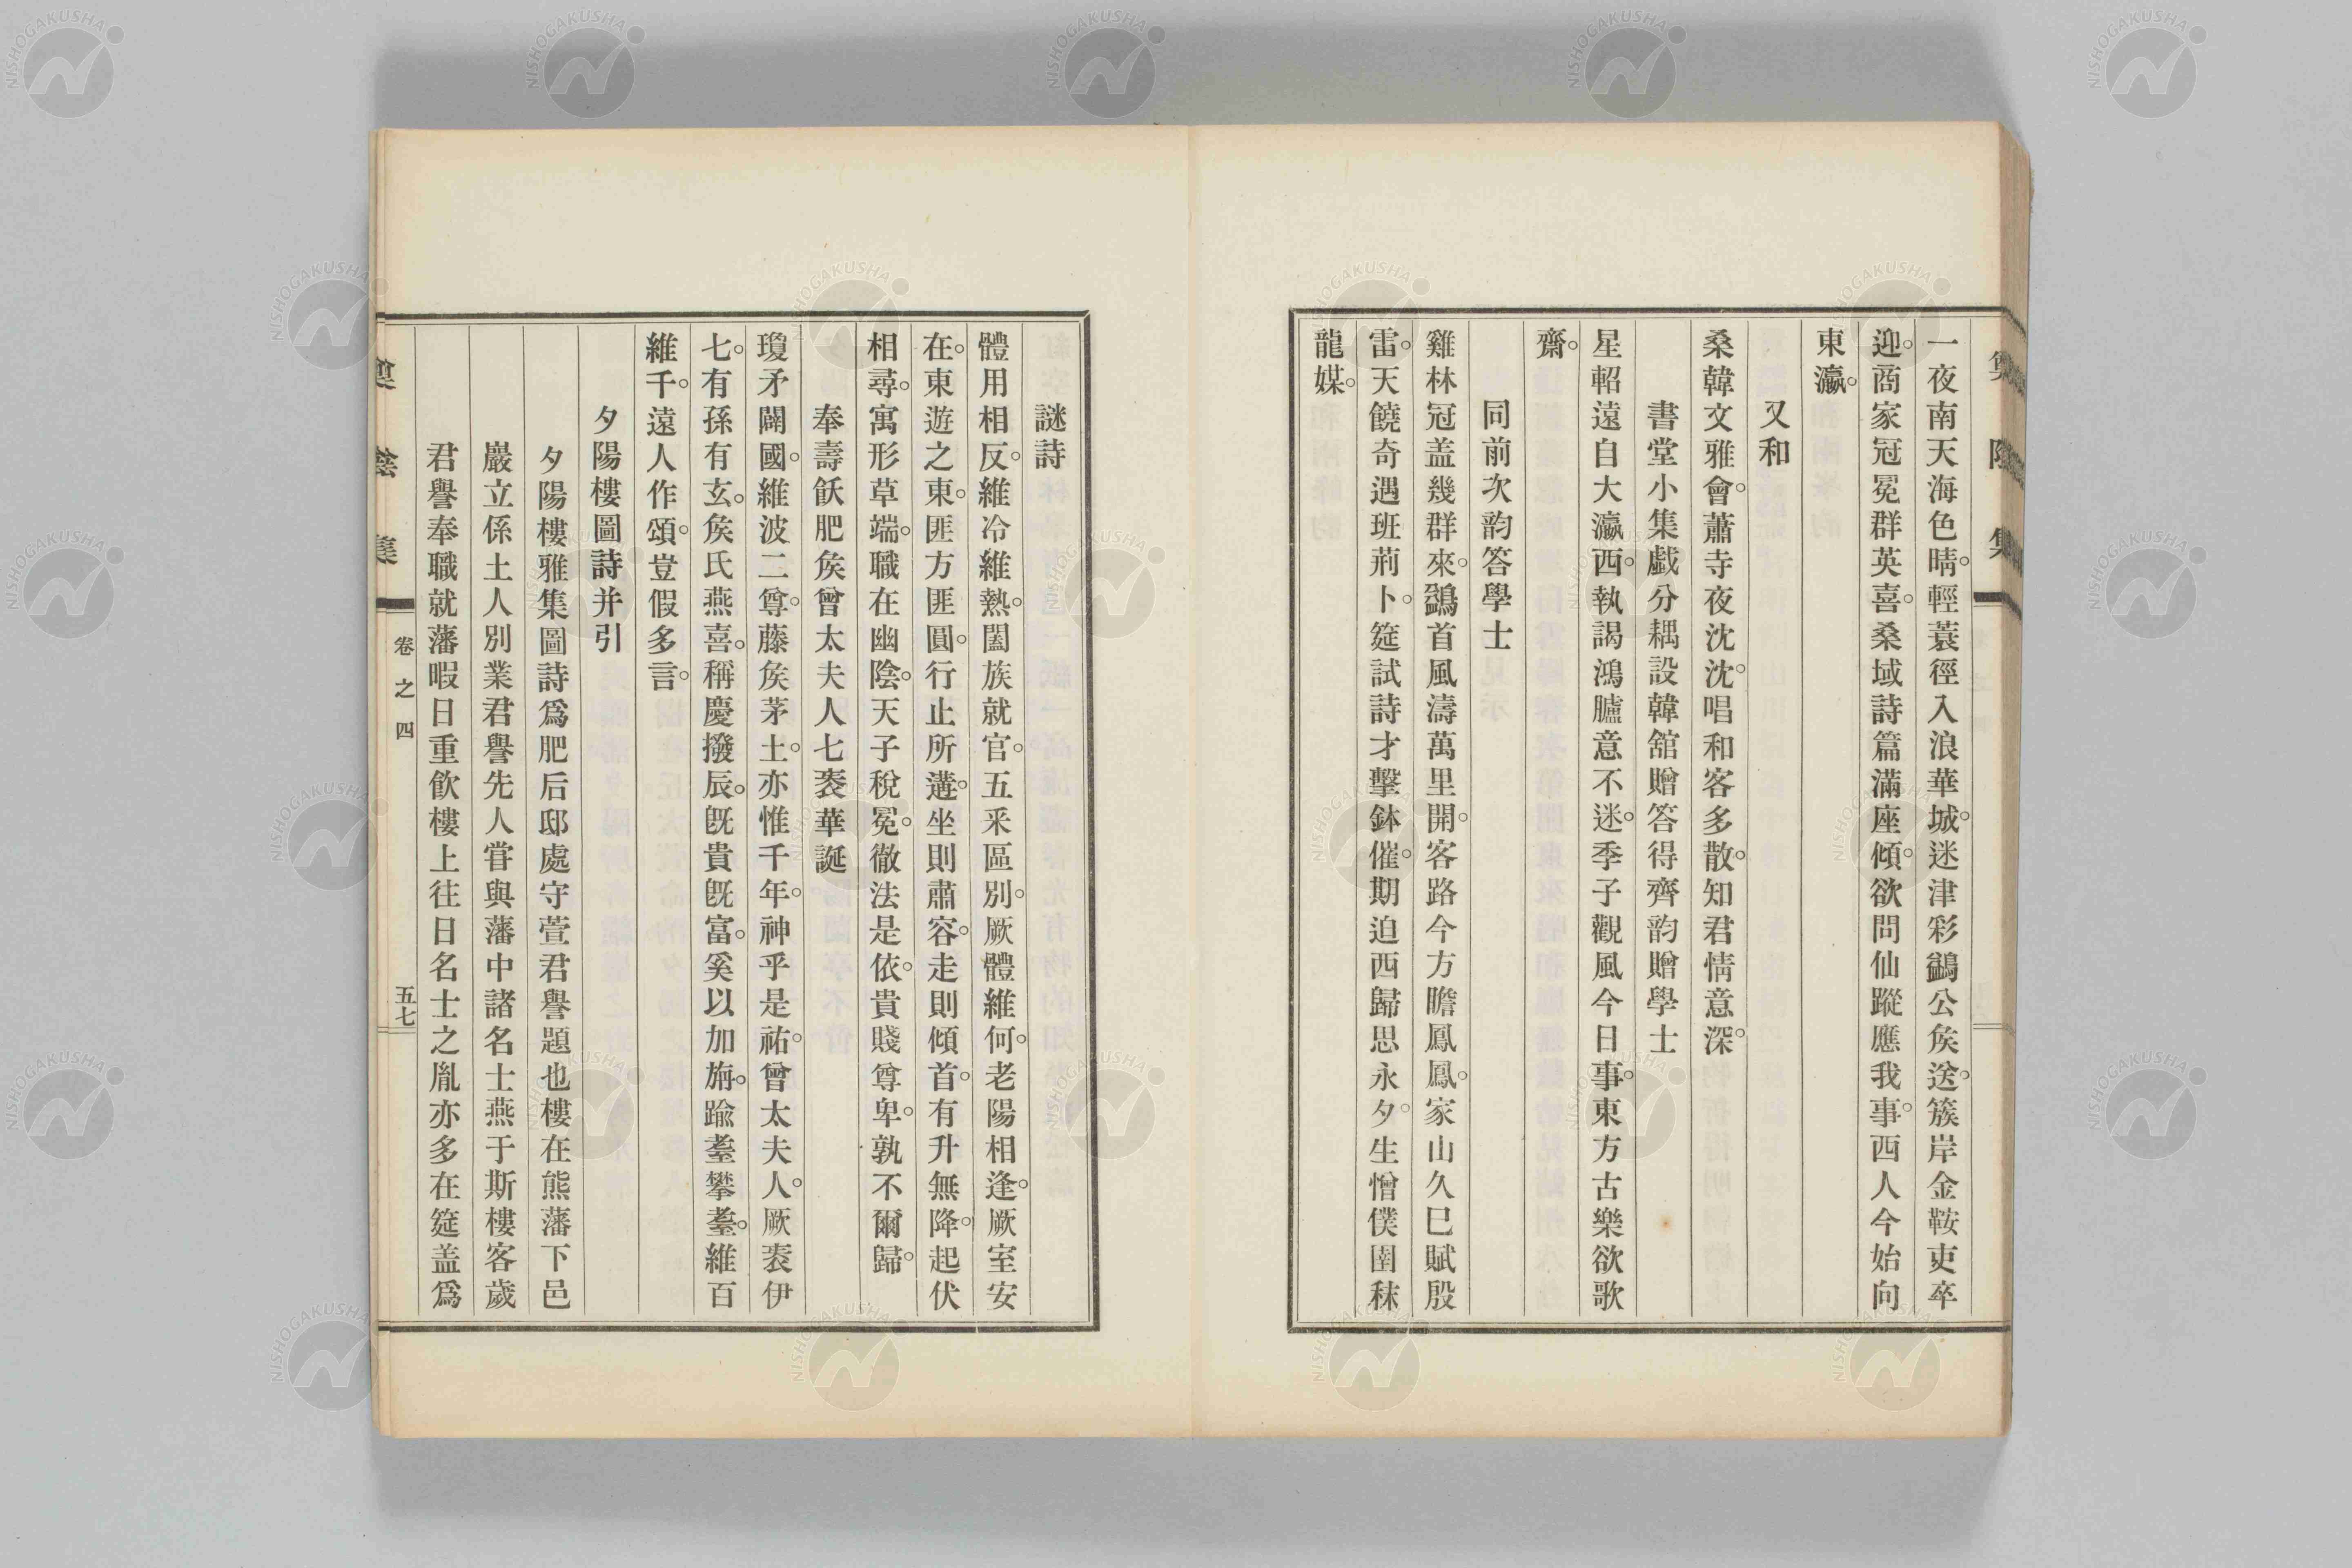 一夜南天海色晴。輕蓑徑入浪華城。迷津彩鷁公矦送。簇岸金鞍吏卒
迎。商家冠冕群英喜。桑域詩篇滿座傾。欲問仙蹤應我事。西人今始向
東瀛。
又和
桑韓文雅會。蕭寺夜沈沈。唱和客多散。知君情意深。
書堂小集戯分耦設韓舘贈答得齊韵贈學士
星軺遠自大瀛西。執謁鴻臚意不迷。季子觀風今日事。東方古樂欲歌
齋。
同前次韵答學士
雞林冠盖幾群來。鷁首風濤萬里開。客路今方瞻鳳鳳。家山久巳賦殷
雷。天饒奇遇班荊卜。筵試詩才擊鉢催。期迫西歸思永夕。生憎僕圉秣
龍媒。
謎詩
體用相反。維冷維熱。闔族就官。五釆區別。厥體維何。老陽相逢。厥室安
在。東遊之東。匪方匪圓。行止所遘。坐則肅容。走則傾首。有升無降。起伏
相尋。寓形草端。職在幽陰。天子稅冕。徹法是依。貴賤尊卑。孰不爾歸。
奉壽飫肥矦曾太夫人七袠華誕
瓊矛闢國。維波二尊。藤矦茅土。亦惟千年。神乎是祐。曾太夫人。厥袠伊
七。有孫有玄。矦氏燕喜。稱慶撥辰。旣貴旣富。奚以加旃。踰耋攀耋。維百
維千。遠人作頌。豈假多言。
夕陽樓圖詩并引
夕陽樓雅集圖詩爲肥后邸處守萱君譽題也樓在熊藩下邑
巖立係土人別業君譽先人甞與藩中諸名士燕于斯樓客歲
君譽奉職就藩暇日重飮樓上往日名士之胤亦多在筵盖爲
卷之四
五七